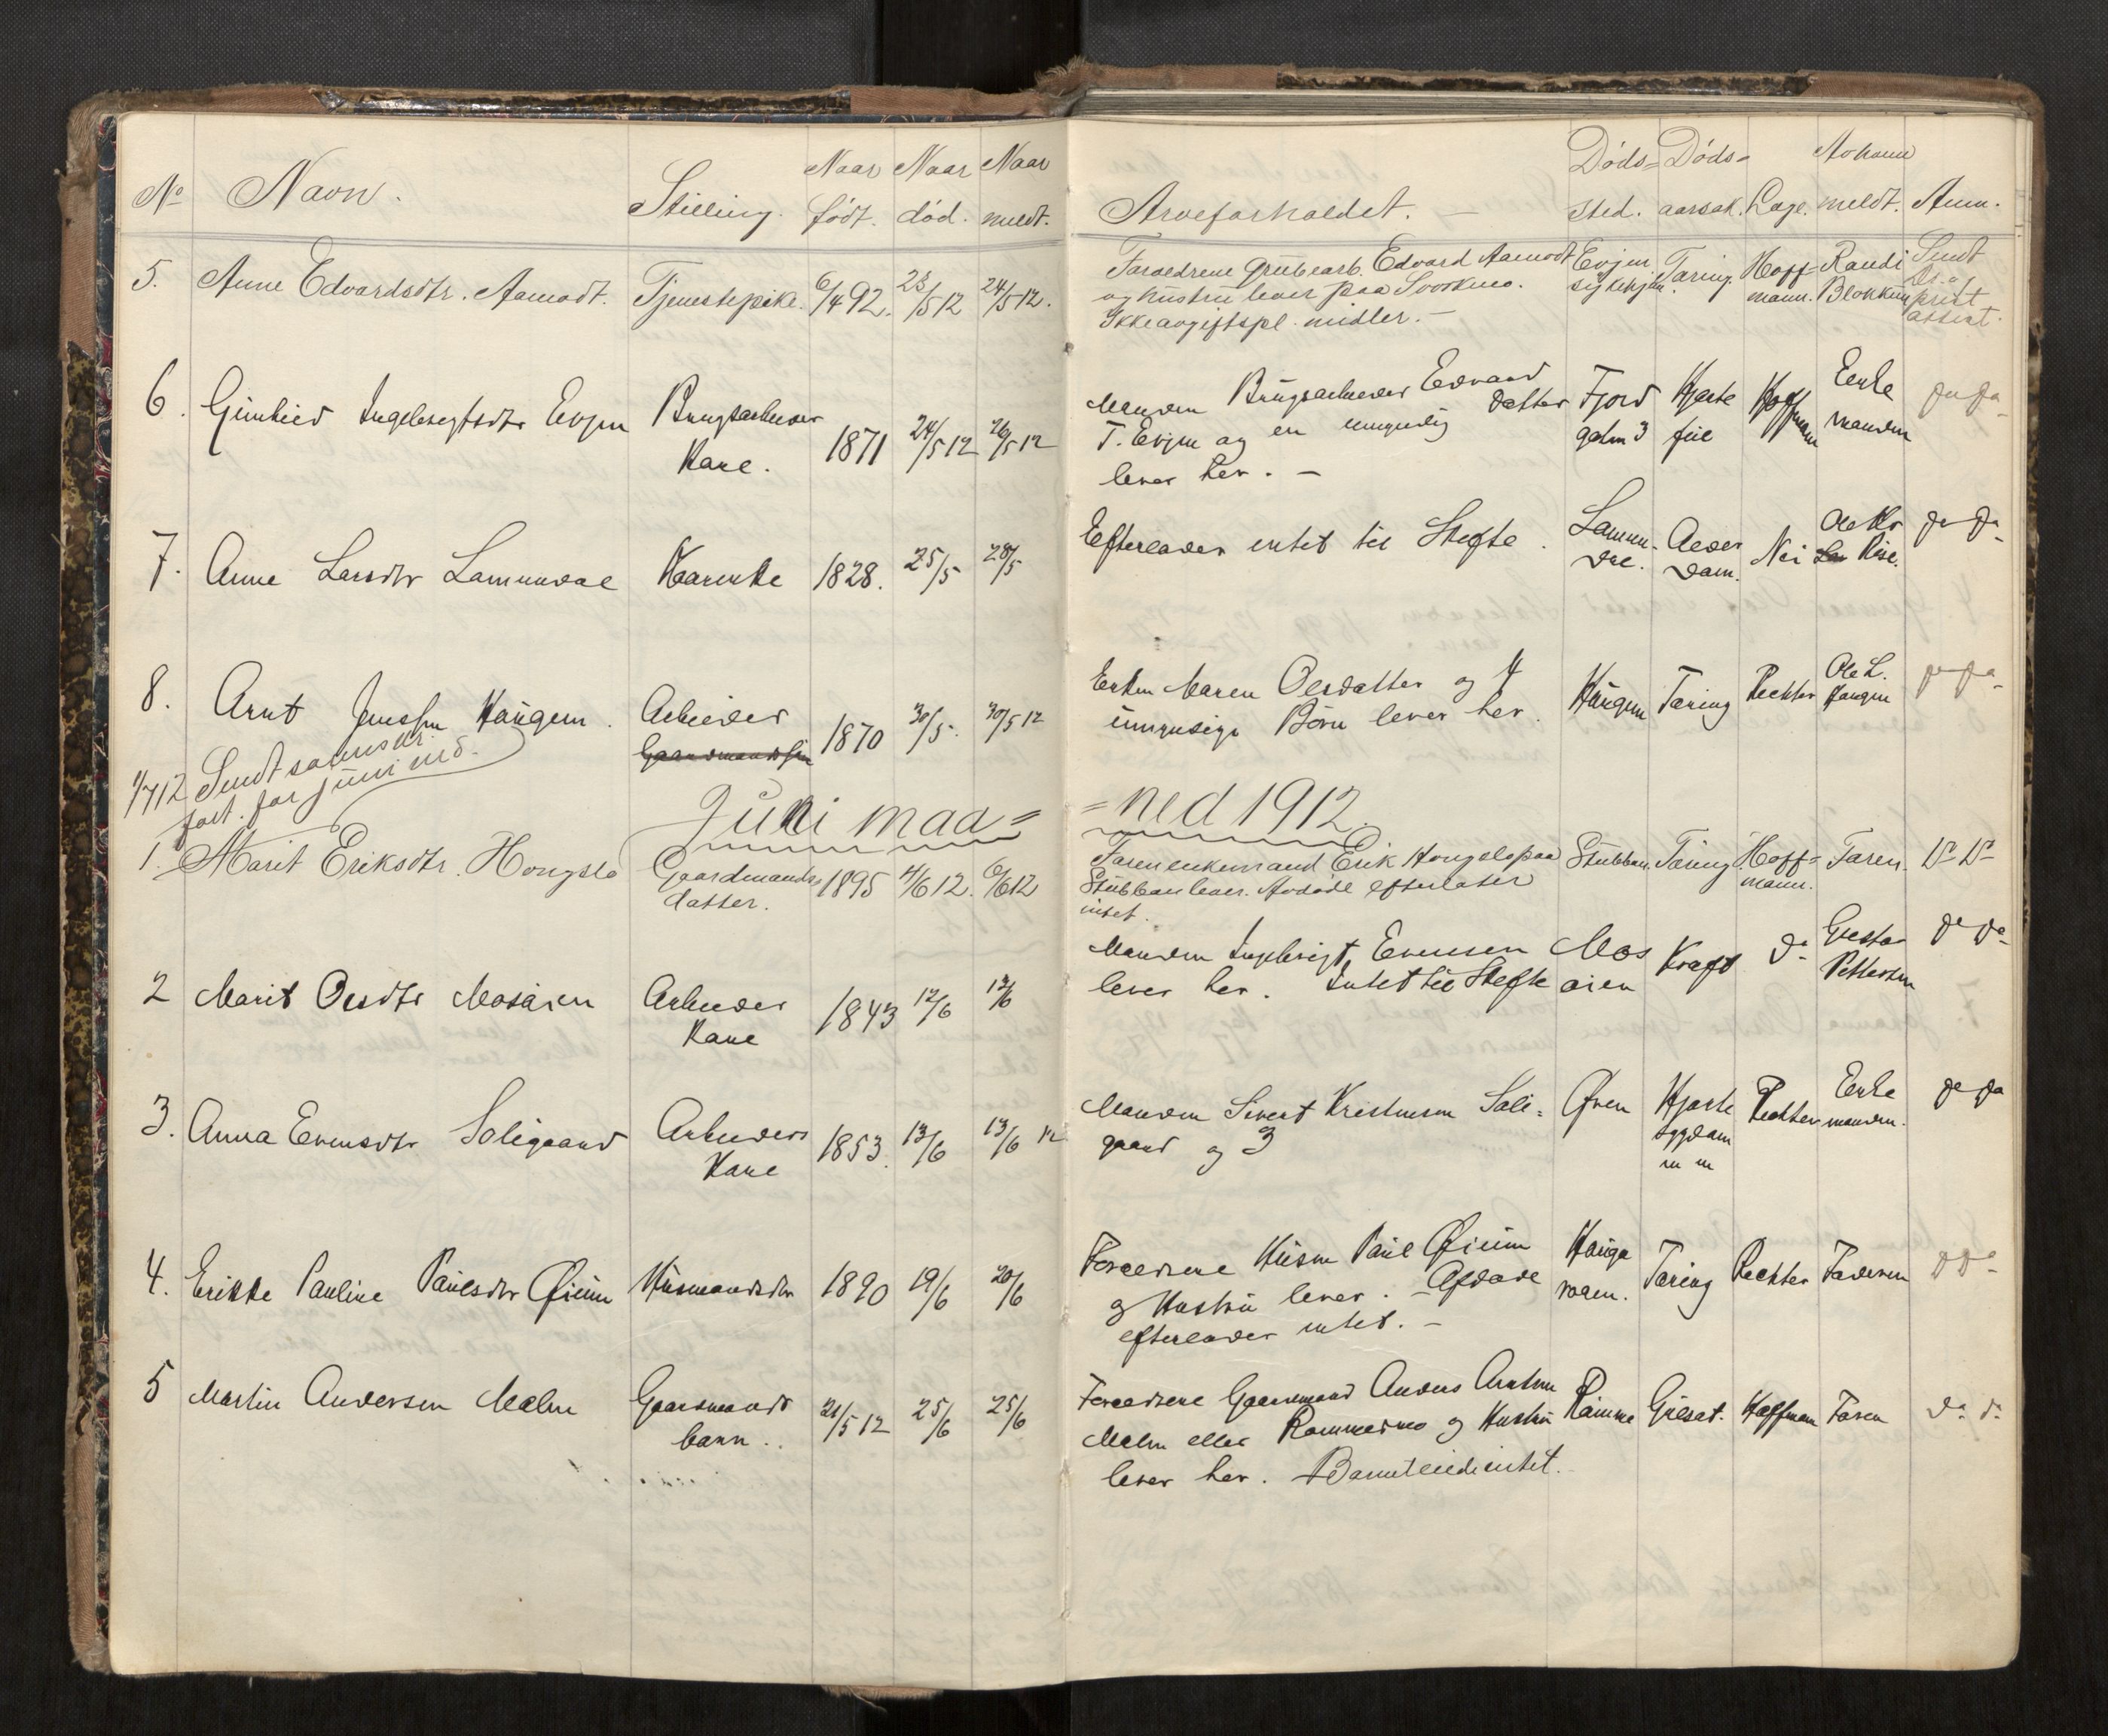 No Navn. Stilling. Naar født. Naar død. Naar meldt. Arveforholdet. Døds-sted. Døds-aarsak. Læge. Av hvem meldt. Anm.
5. Anne Edvardsdtr. Aamodt. Tjenestepike. 6/4 92. 23/5 12 24/5 12.
Foreldrene Grubearb. Edvard Aamodt
og hustru lever paa Svorkmo.
Ikke avgiftspl. midler. —
Evjen sykehjem. Tæring. Hoff-mann. Randi Blokkum Sendt
6. Gunhild Ingebregtsdtr Evjen Brugsarbeider Kone. 1871 24/5 12 26/5 12
Manden Brugsarbeider Edvard
T. Evjen og en umyndig datter
lever her. —
Fjord galen 3 Hjerte feil Hoffmann Enke manden do do
7. Anne Larsdtr Lamundal Kaarenke 1828. 25/5 28/5
Efterlader intet til Skifte.
Lamun-dal. Alder dom. Nei Ole Kr Rise. do do
8. Arnt Jensen Haugen. Arbeider Gaardmandssøn 1870 30/5. 30/5 12
Enken Maren Olsdatter og 4
umyndige Børn lever her.
Haugen Tæring Richter Ole L. Haugen do do
1/7 12 Sendt
fort. for juni md.
Juni maa=
=ned 1912.
1. Marit Eriksdtr. Hongslo Gaardmands datter. 1895 4/6 12. 6/6 12
Faren enkemand Erik Hongslo paa
Stubban lever. Avdøde efterlater
intet.
Stubban. Tæring. Hoff-mann. Faren. Do Do
2 Marit Olsdtr Mosåren Arbeider Kone 1843 12/6 13/6
Manden Ingebrigt Evensen
lever her. Intet til Skifte
Mos åren Kræft do Gustav Pettersen do do
3. Anna Evensdtr Soligaard Arbeiders Kone 1853. 13/6 13/6 12
Manden Sivert Kristensen Soli=
gaard og 3
Øren Hjerte sygdom m m Richter Enke manden. do do
4. Erikke Pauline Paulsdtr Øium Husmandsdtr 1890 19/6 20/6
Forældrene Husm Paul Øium
og Hustru lever. — Afdøde
efterlader intet. —
Hauga moen. Tæring Richter Faderen do
5 Martin Andersen Malm Gaardmands barn. 21/5 12 25/6 25/6
Forældrene Gaardmand Anders Arntsen
Malm eller Rommesmo og Hustru
lever her. Barnet eiedi intet.
Gulsot. Hoffman Faren do do